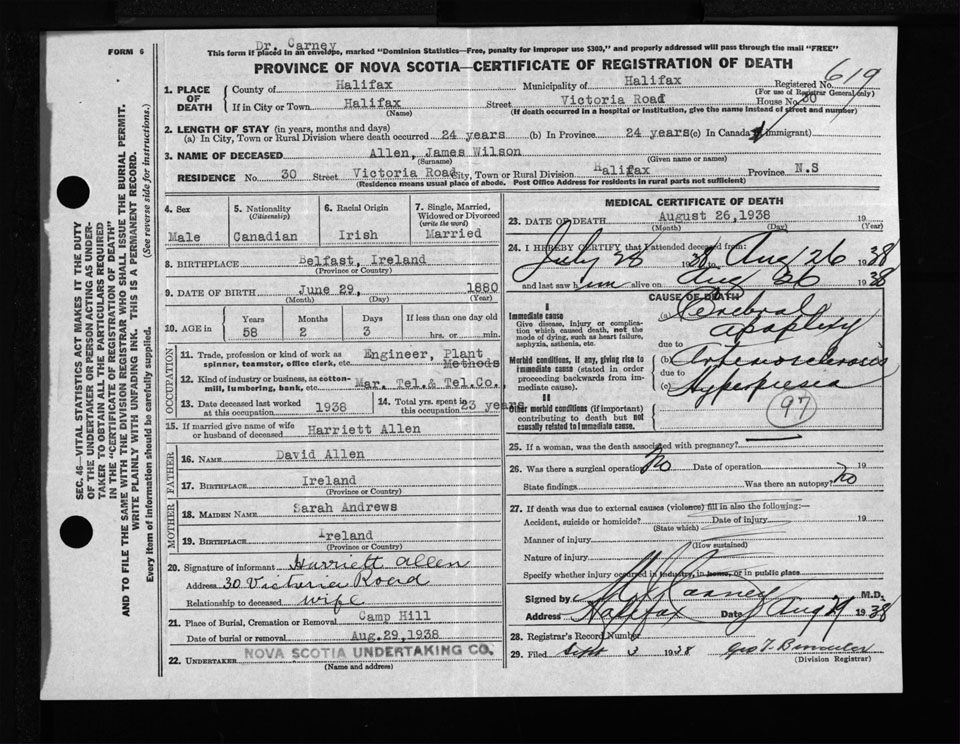 FORM 6
Dr. Carney
This form if placed in an envelope, marked "Dominion Statistics—Free, penalty for improper use $300," and properly addressed will pass through the mail "FREE"
PROVINCE OF NOVA SCOTIA—CERTIFICATE OF REGISTRATION OF DEATH
619
1. PLACE OF DEATH
County of Halifax Municipality of Halifax Registered No.
(For use of Registrar General only)
If in City or Town Halifax Street Victoria Road House No. 30
(Name) (If death occurred in a hospital or institution, give the name instead of street and number)
2. LENGTH OF STAY (in years, months and days)
(a) In City, Town or Rural Division where death occurred 24 years (b) In Province 24 years (c) In Canada (if immigrant)
3. NAME OF DECEASED Allen, James Wilson
(Surname) (Given name or names)
RESIDENCE No. 30 Street Victoria Road City, Town or Rural Division Halifax Province N.S
(Residence means usual place of abode. Post Office Address for residents in rural parts not sufficient)
4. Sex
Male
5. Nationality
(Citizenship)
Canadian
6. Racial Origin
Irish
7. Single, Married, Widowed or Divorced
(write the word)
Married
8. BIRTHPLACE Belfast, Ireland
(Province or Country)
9. DATE OF BIRTH June 29, 1880
(Month) (Day) (Year)
10. AGE in
Years Months Days If less than one day old
58 2 3 hrs. or min.
OCCUPATION
11. Trade, profession or kind of work as spinner, teamster, office clerk, etc. Engineer, Plant Methods
12. Kind of industry or business, as cotton-mill, lumbering, bank, etc. Mar. Tel. & Tel. Co.
13. Date deceased last worked at this occupation 1938
14. Total yrs. spent in this occupation 23 years
15. If married give name of wife or husband of deceased Harriett Allen
FATHER
16. NAME David Allen
17. BIRTHPLACE Ireland
(Province or Country)
MOTHER
18. MAIDEN NAME Sarah Andrews
19. BIRTHPLACE Ireland
(Province or Country)
20. Signature of informant Harriett Allen
Address 30 Victoria Road
Relationship to deceased wife
21. Place of Burial, Cremation or Removal Camp Hill
Date of burial or removal Aug. 29, 1938
22. UNDERTAKER NOVA SCOTIA UNDERTAKING CO.
(Name and address)
MEDICAL CERTIFICATE OF DEATH
23. DATE OF DEATH August 26, 1938 19
(Month) (Day)
24. I HEREBY CERTIFY that I attended deceased from:
July 28 1938 to Aug 26 1938
and last saw him alive on Aug 26 1938
CAUSE OF DEATH
I
Immediate cause
Give disease, injury or complication which caused death, not the mode of dying, such as heart failure, asphyxia, asthenia, etc.
(a) Cerebral apoplexy
due to
Morbid conditions, if any, giving rise to immediate cause (stated in order proceeding backwards from immediate cause).
(b) Arteriosclerosis
due to
(c) Hyperpiesia
97
II
Other morbid conditions (if important) contributing to death but not causally related to immediate cause.
25. If a woman, was the death associated with pregnancy?
26. Was there a surgical operation? No Date of operation 19
State findings Was there an autopsy? No
27. If death was due to external causes (violence) fill in also the following:—
Accident, suicide or homicide? Date of injury 19
(State which)
Manner of injury
(How sustained)
Nature of injury
Specify whether injury occurred in industry, in home, or in public place
Signed by Carney M.D.
Address Halifax Date Aug 29 1938
28. Registrar's Record Number
29. Filed Sept 3 1938
(Division Registrar)
SEC. 46—VITAL STATISTICS ACT MAKES IT THE DUTY
OF THE UNDERTAKER OR PERSON ACTING AS UNDER-
TAKER TO OBTAIN ALL THE PARTICULARS REQUIRED
IN THE "CERTIFICATE OF REGISTRATION OF DEATH"
AND TO FILE THE SAME WITH THE DIVISION REGISTRAR WHO SHALL ISSUE THE BURIAL PERMIT.
WRITE PLAINLY WITH UNFADING INK. THIS IS A PERMANENT RECORD.
Every item of information should be carefully supplied. (See reverse side for instructions.)